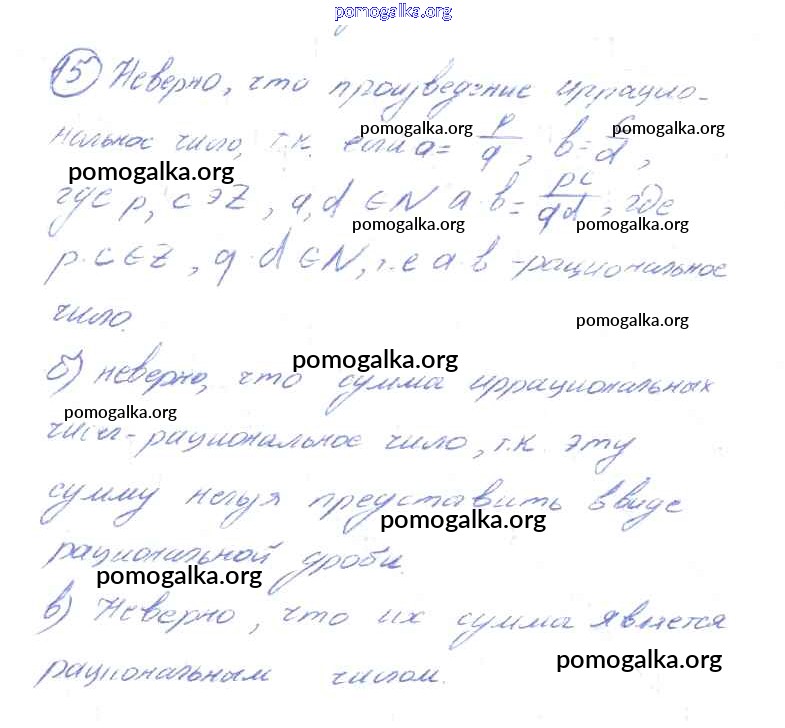 pomogalka.org
15) Неверно, что произведение иррацио-
нальное число, т.к. если a = p/q, b = c/d,
pomogalka.org pomogalka.org
pomogalka.org
где p, c ∋ Z, q, d ∈ N a·b = pc/qd, где
pomogalka.org pomogalka.org
p·c ∈ Z, q·d ∈ N, т.е a·b - рациональное
число.
pomogalka.org
pomogalka.org
б) неверно, что сумма иррациональных
pomogalka.org
чисел - рациональное число, т.к. эту
сумму нельзя представить в виде
pomogalka.org
рациональной дроби.
pomogalka.org
в) Неверно, что их сумма является
pomogalka.org
рациональным числом.